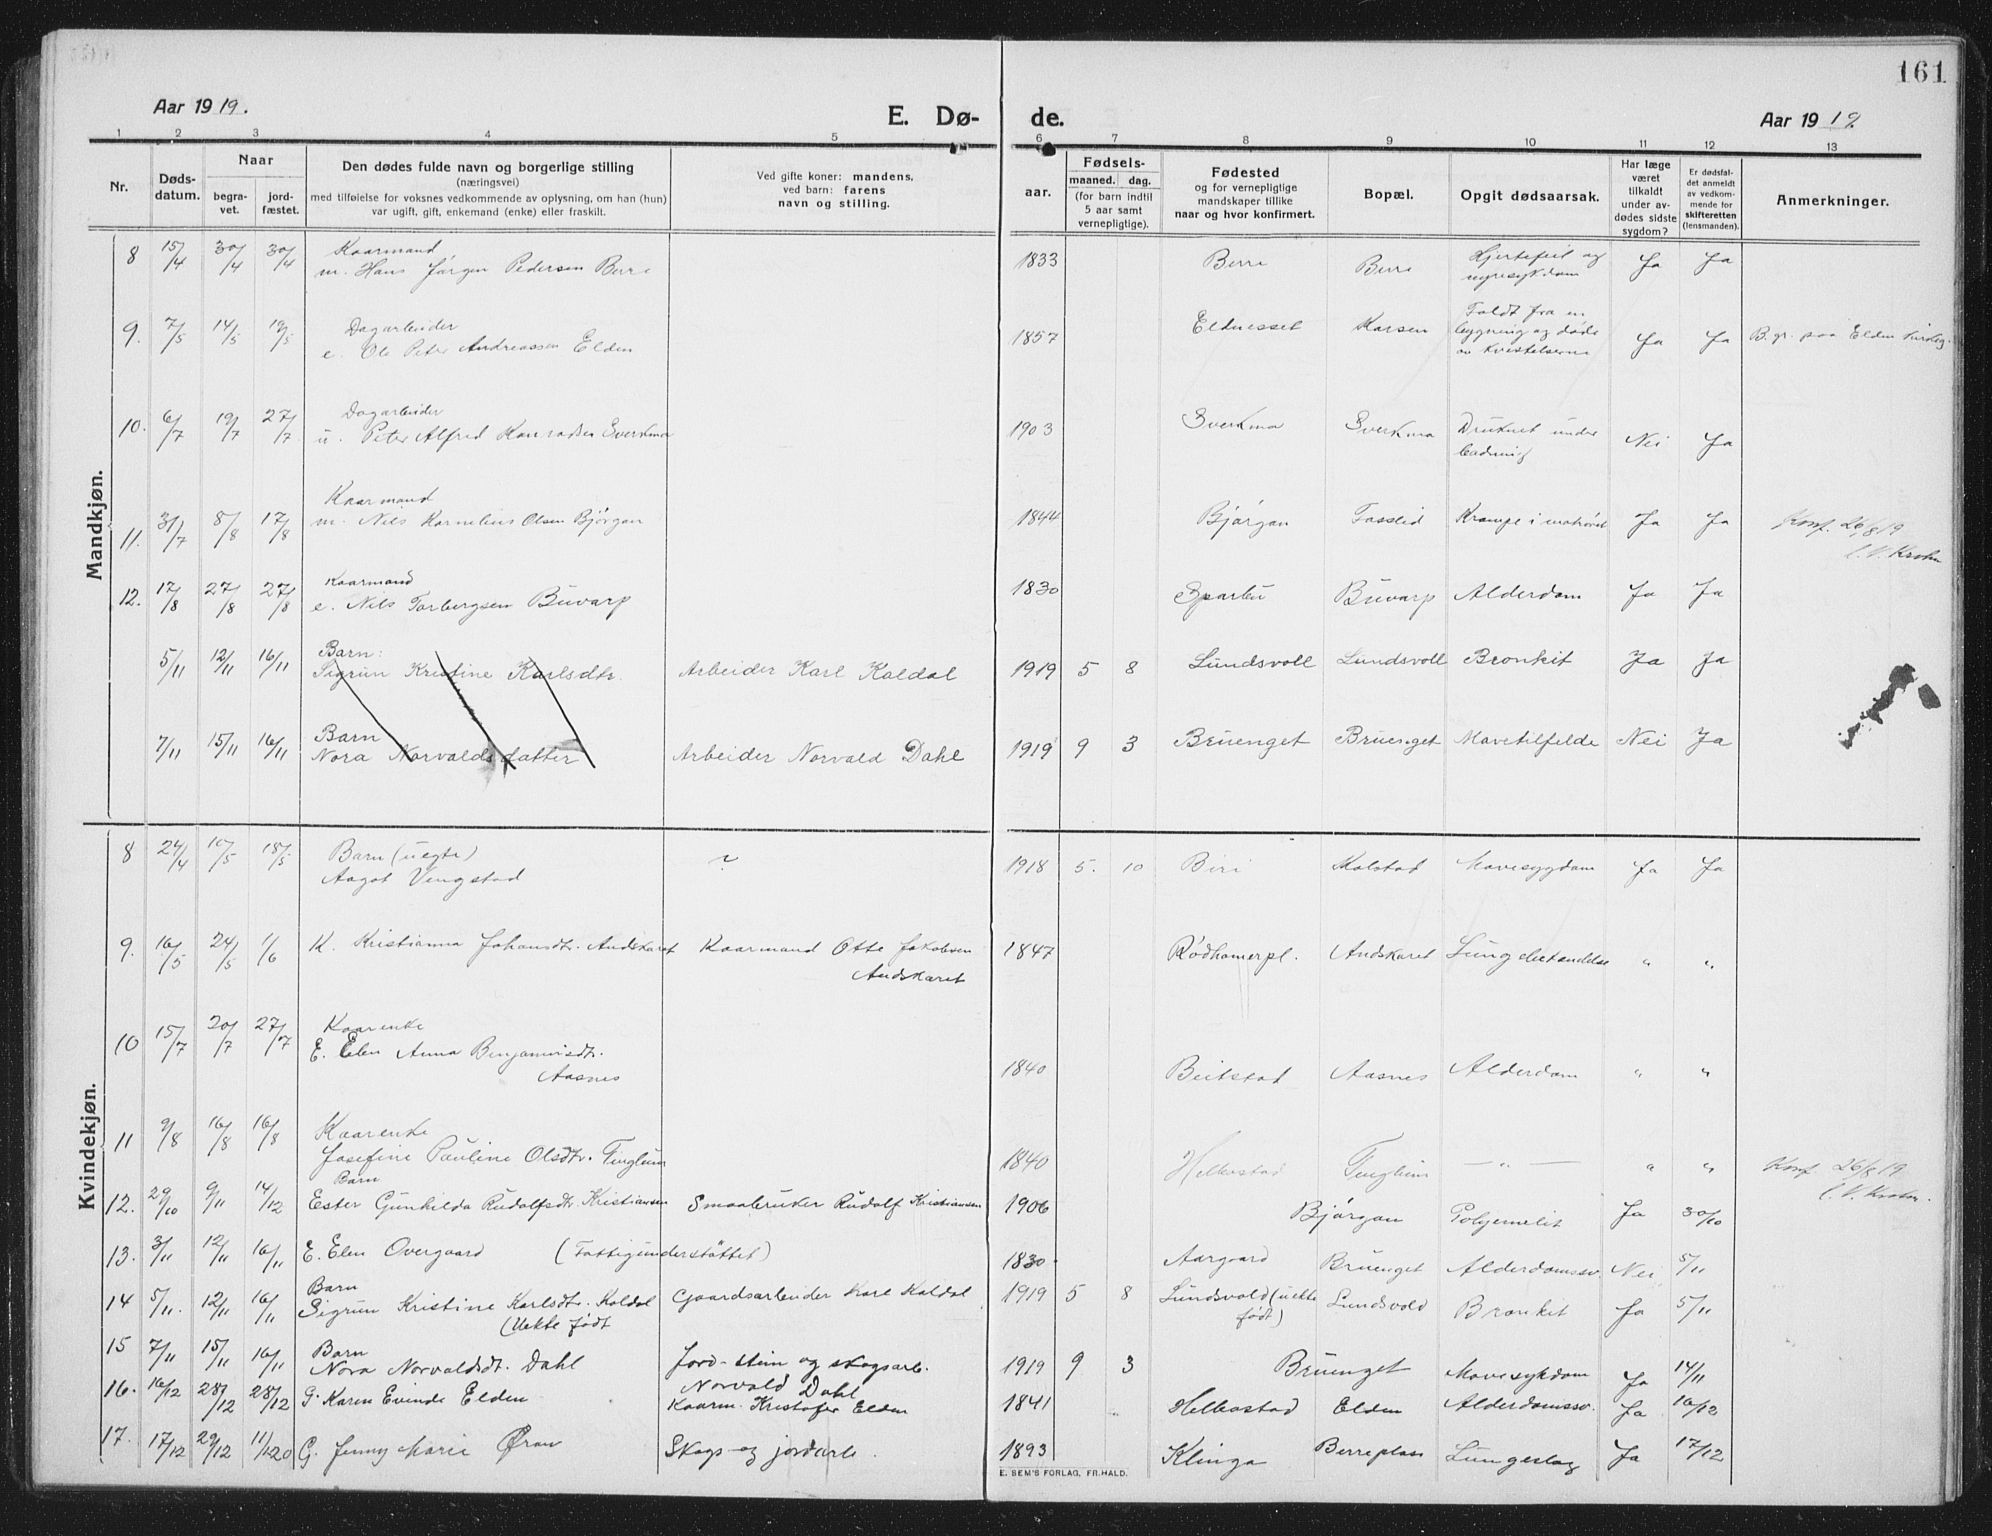 161
Aar 1919.
E. Dø-
de.
Aar 1919
1 2 3 4 5 6 7 8 9 10 11 12 13
Nr.
Døds-
datum.
Naar
begra-
vet.
jord-
fæstet.
Den dødes fulde navn og borgerlige stilling
(næringsvei)
med tilføielse for voksnes vedkommende av oplysning, om han (hun)
var ugift, gift, enkemand (enke) eller fraskilt.
Ved gifte koner: mandens,
ved barn: farens
navn og stilling.
aar.
Fødsels-
maaned. dag.
(for barn indtil
5 aar samt
vernepligtige).
Fødested
og for vernepligtige
mandskaper tillike
naar og hvor konfirmert.
Bopæl.
Opgit dødsaarsak.
Har læge
været
tilkaldt
under av-
dødes sidste
sygdom?
Er dødsfal-
det anmeldt
av vedkom-
mende for
skifteretten
(lensmanden).
Anmerkninger.
Mandkjøn.
Kaarmand
8 15/4 30/4 30/4 m. Hans Jørgen Pedersen Berre 1833 Berre Berre Hjertefeil og nyresykdom Ja Ja
Dagarbeider
9. 7/5 14/5 19/5 e. Ole Peter Andreassen Elden 1857 Eldnesset Karsen Faldt fra en bygning og døde av kvæstelserne Ja Ja B.gr. paa Elden kirkeg.
Dagarbeider
10. 6/7 19/7 27/7 u. Peter Alfred Konradsen Sverkmo 1903 Sverkmo Sverkmo Druknet under badning Nei Ja
Kaarmand
11. 31/7 8/8 17/8 m. Nils Kornelius Olsen Bjørgan 1844 Bjørgan Fosslid Krampe i matrøret Ja Ja Konf. 26/8 19
Krohn
Kaarmand
12. 17/8 27/8 27/8 e. Nils Torbergsen Buvarp 1830 Sparbu Buvarp Alderdom Ja Ja
Barn:
5/11 12/11 16/11 Sigrun Kristine Karlsdtr. Arbeider Karl Kaldal 1919 5 8 Lundsvoll Lundsvoll Bronkit Ja Ja
Barn
7/11 15/11 16/11 Nora Norvaldsdatter Arbeider Norvald Dahl 1919 9 3 Bruenget Bruenget Mavetilfelde Nei Ja
Kvindekjøn.
8 24/4 10/5 18/5 Barn (uegte) ? 1918 5. 10 Biri Molstad Mavesygdom Ja Ja
Aagot Vingstad
9. 16/5 24/5 1/6 K. Kristianna Johansdtr. Andskaret Kaarmand Otte Jakobsen 1847 Rødhamerpl. Andskaret Lungebetændelse " "
Andskaret
Kaarenke
10 15/7 20/7 27/7 E. Elen Anna Benjaminsdtr. 1840 Beitstad Aasnes Alderdom " "
Aasnes
Kaarenke
11 9/8 16/8 16/8 Josefine Pauline Olsdtr. Finglum 1840 Helbostad Finglum — " — " " Konf. 26/8 19.
Krohn.
Barn
12. 29/10 9/11 14/12 Ester Gunhilda Rudolfsdtr Kristiansen Smaabruker Rudolf Kristiansen 1906 Bjørgan Polyemelit Ja 30/10
13. 3/11 12/11 16/11 E. Elen Overgaard (Fattigunderstøttet) 1830. Aargaard Bruenget Alderdomssv. Nei 5/11
Barn
14 5/11. 12/11 16/11 Sigrun Kristine Karlsdtr. Kaldal Gaardsarbeider Karl Kaldal 1919 5 8 Lundsvold (uekte født) Lundsvold Bronkit Ja 5/11
(Uekte født
Barn
15 7/11 15/11 16/11 Nora Norvaldsdt. Dahl Jord-stein og skogsarb. 1919 9 3 Bruenget Mavesykdom Ja 14/11
Norvald Dahl
16. 16/12 28/12 28/12 G. Karen Evinde Elden Kaarm. Kristofer Elden 1841 " Helbostad Elden Alderdomssv. Ja 16/12
17. 17/12 29/12 11/1 20 G. Jenny Marie Øran Skogs- og jordarb. 1893 Klinga Berreplass Lungeslag Ja 17/12
E. SEM'S FORLAG, FR.HALD.